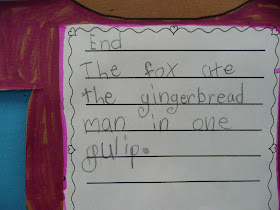 End
The fox ate
the gingerbread
man in one
gulp.